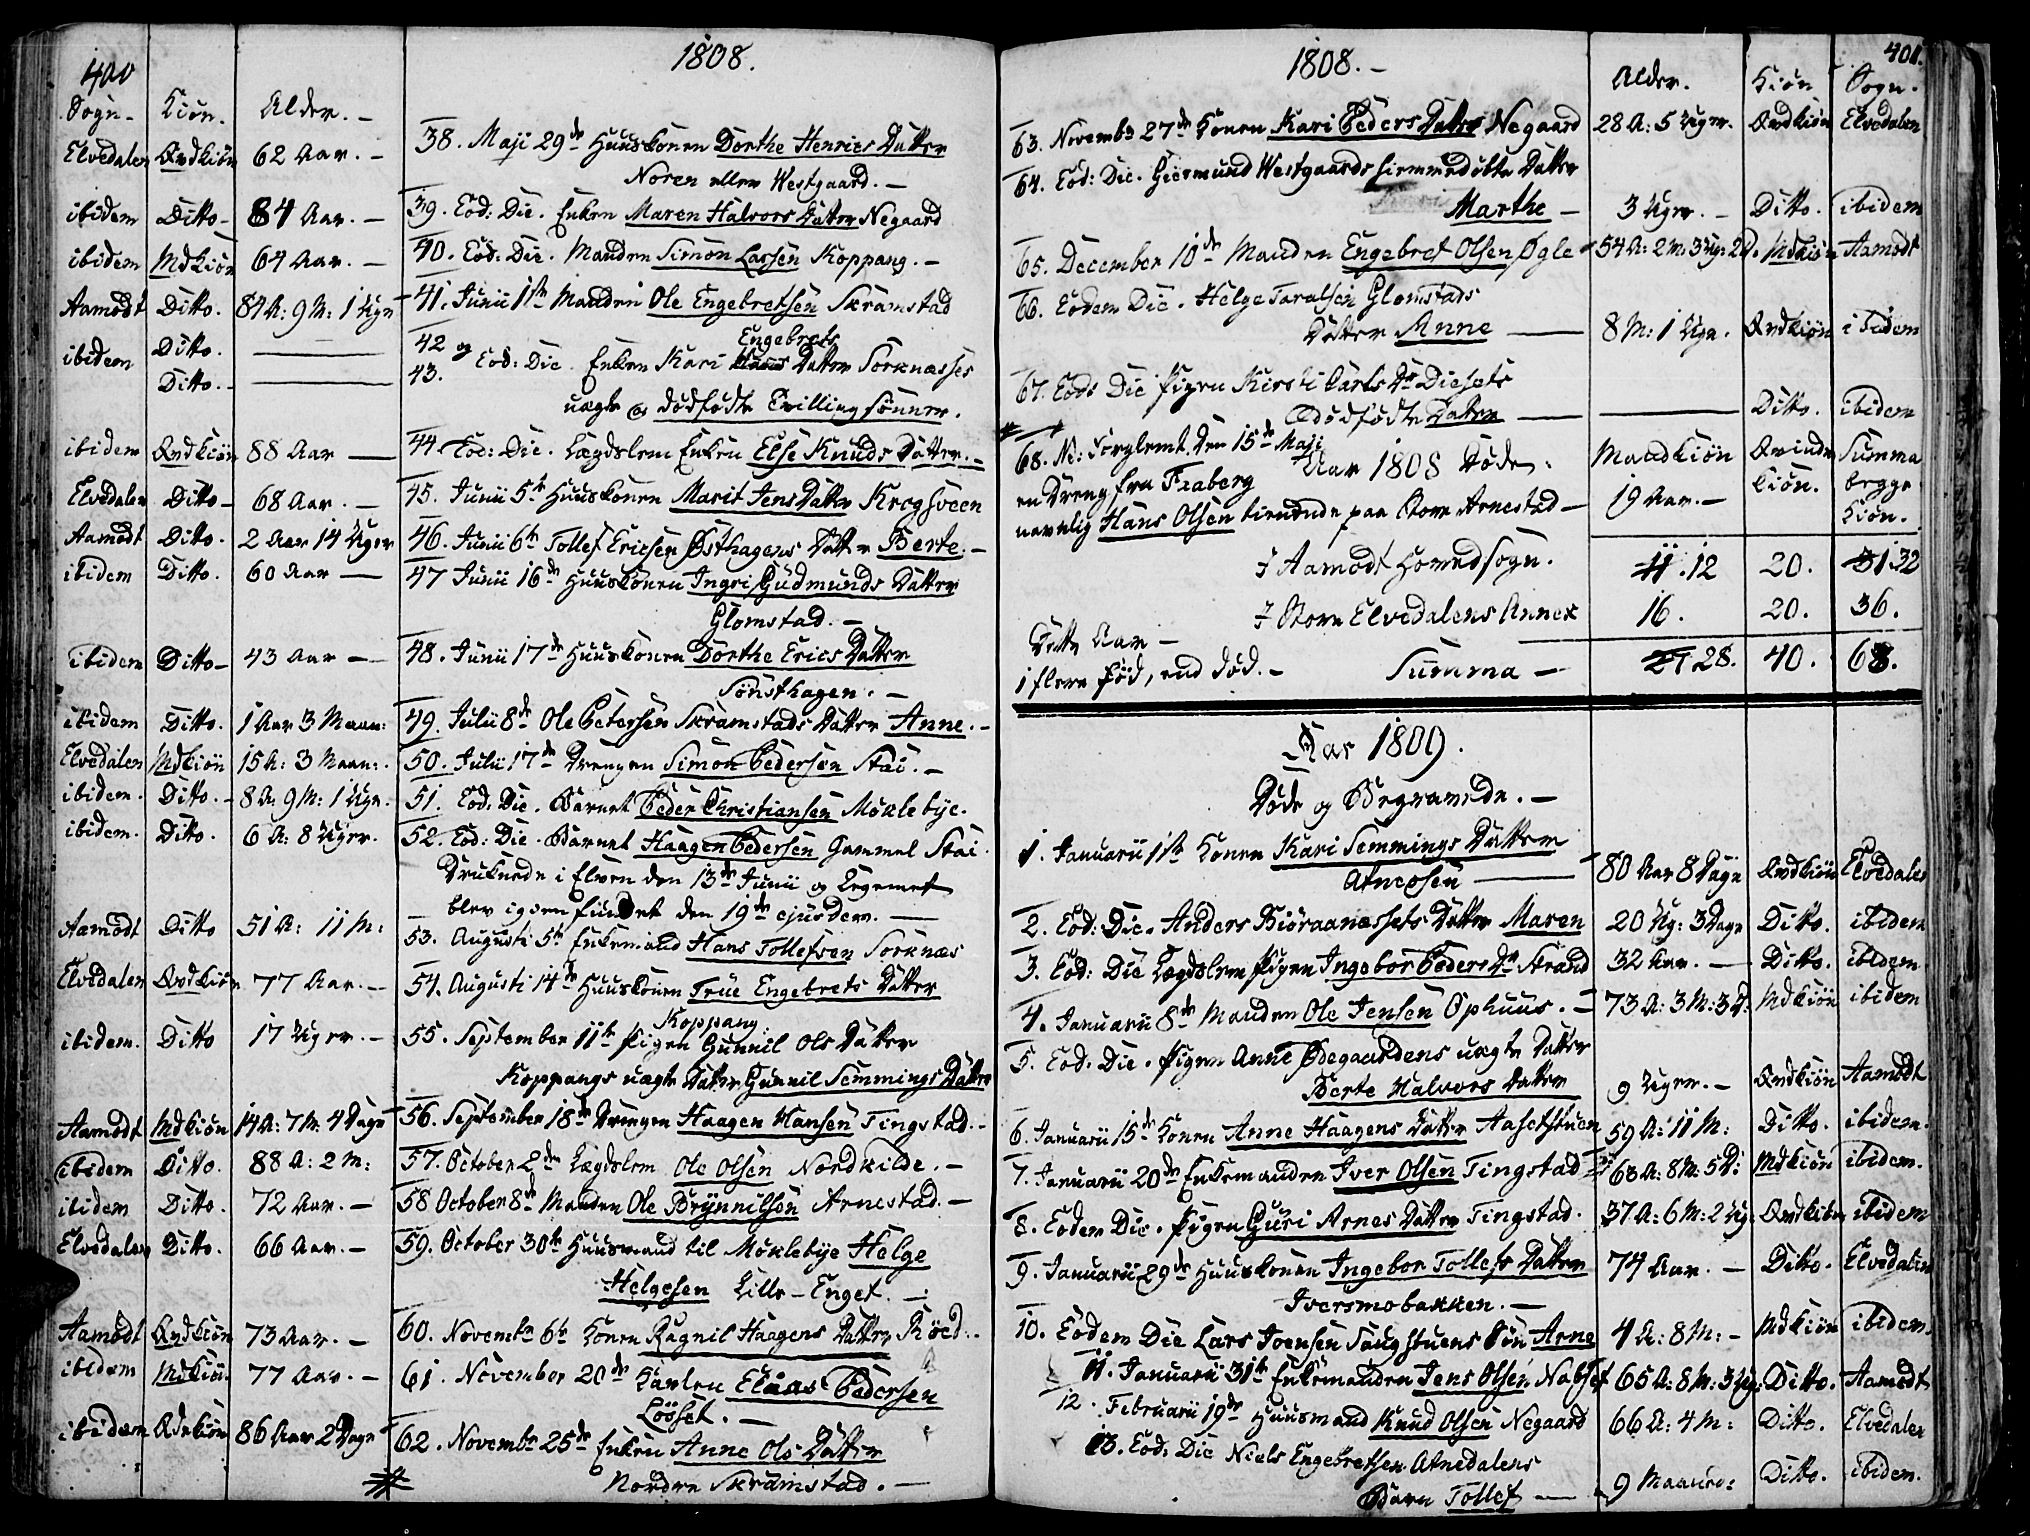 400
1808.
Sogn. Kiön. Alder.
Elvedalen Qvdkiön 62 Aar. 38. Maji 29de Huuskonen Dorthe Henrics Datter
Noren eller Westgaard.
ibidem Ditto 84 Aar. 39. Eod: Die. Enken Maren Halvors Datter Negaard
ibidem Mdkiön 64 Aar. 40. Eod: Die. Manden Simon Larsen Koppang.
Aamodt Ditto. 84 A: 9 M: 1 Uge 41. Junii 1ste Manden Ole Engebretsen Skramstad
Engebrets
ibidem Ditto. 42 og
Ditto. 43. Eod: Die. Enken Kari Datter Sorknæsses
uægte og dödfödte Tvillingsönner.
ibidem Qvdkiön 88 Aar 44. Eod: Die. Lægdslem Enken Else Knuds Datter.
Elvedalen Ditto 68 Aar. 45. Junii 5te Huuskonen Marit Jens Datter Krogsveen
Aamodt Ditto. 2 Aar 14 Uger 46. Junii 6te Tollef Ericsen Østhagens Datter Berte.
ibidem Ditto. 60 Aar 47 Junii 16de Huuskonen Ingri Gudmunds Datter
Glomstad.
ibidem Ditto 43 Aar 48. Junii 17de Huuskonen Dorthe Erics Datter
Sönsthagen.
ibidem Ditto. 1 Aar 3 Maan: 49. Julii 8de Ole Petersen Skramstads Datter Anne.
Elvedalen Mdkiön 15 A: 3 Maan: 50. Julii 17de Drengen Simon Pedersen Stai.
ibidem. Ditto. 8 A: 9 M: 1 Uge. 51. Eod: Die. Barnet Peder Christiansen Möklebye.
ibidem. Ditto. 6 A: 8 Uger. 52. Eod: Die. Barnet Haagen Pedersen Gammel Stai.
Druknede i Elven den 13de Junii og Legemet
blev igien fundet den 19de ejusdem.
Aamodt Ditto 51 A: 11 M: 53. Augusti 5te Enkemand Hans Tollefsen Sorknæs
Elvedalen Qvdkiön 77 Aar. 54. Augusti 14de Huuskonen True Engebrets Datter
Koppang.
ibidem. Ditto 17 Uger. 55. September 11te Pigen Gunnil Ols Datter
Koppangs uægte Datter Gunnil Semmings Datter
Aamodt Mdkiön 14 A: 7 M: 4 Dage 56. September 18de Drengen Haagen Hansen Tingstad.
ibidem Ditto. 88 A: 2 M: 57. October 2de Lægdslem Ole Olsen Nordkilde.
ibidem Ditto. 72 Aar. 58 October 8de Manden Ole Brynnilsön Arnestad.
Elvedalen Ditto. 66 Aar. 59. October 30te Huusmand til Möklebye Helge
Helgesen Lille-Enget.
Aamodt Qvdkiön 73 Aar. 60. Novembr 6te Konen Ragnil Haagens Datter Röed.
ibidem Mdkiön. 77 Aar. 61. November 20de Karlen Elias Pedersen
Löset.
ibidem Qvdkiön 86 Aar 2 Dage 62. Novembr 25de Enken Anne Ols Datter
Nordre Skramstad.
1808.
Alder. Kiön Sogn. 401.
63. Novembr 27de Konen Kari Peders Datter Negaard 28 A: 5 Uger. Qvdkiön Elvedalen
64. Eod: Die. Giermund Westgaards hiemmedöbte Datter
Marthe 3 Uger. Ditto. ibidem
65. December 10de Manden Engebret Olsen Øgle 54 A: 2 M: 3 Ug: 2 D. Mdkiön Aamodt
66. Eodem Die. Helge Taralsen Glomstads
Datter Anne 8 M: 1 Uge. Qvdkiön ibidem
67. Eod: Die Pigen Kirsti Carls Dr Diesets
dödfödte Datter Ditto. ibidem
68. Nb: Forglemt den 15de Maji
en Dreng fra Faaberg
navnlig Hans Olsen tienende paa Store Arnestad 19 Aar.
Aar 1808 Döde. Mandkiön Qvinde kiön. Summa begge kiön.
I Aamodt Hovedsogn. 11. 12 20. 31 32
I Store Elvedalens Annex 16. 20. 36.
Dette Aar
1 flere Föd, end död. Summa 27 28. 40. 68.
Aar 1809.
Döde og Begravede.
1. Januarii 1ste Konen Kari Semmings Datter
Atneosen 80 Aar 8 Dage Qvdkiön Elvedalen
2. Eod: Die. Anders Biöraanæssets Datter Maren 20 Ug: 3 Dage Ditto. ibidem
3. Eod: Die Lægdslem Pigen Ingebor Peders Dr Strand 32 Aar. Ditto. ibidem.
4. Januarii 8de Manden Ole Jensen Ophuus. 73 A: 3 M: 3 D: Mdkiön ibidem
5. Eod: Die. Pigen Anne Ødegaardens uægte Datter
Berte Halvors Datter 9 Uger. Qvdkiön Aamodt
6. Januarii 15de Konen Anne Haagens Datter Aasetstuen 59 A: 11 M: Ditto. ibidem.
7. Januarii 20de Enkemanden Iver Olsen Tingstad 68 A: 8 M: 5 D: Mdkiön ibidem.
8. Eodem Die. Pigen Guri Arnes Datter Tingstad. 37 A: 6 M: 2 Ug: Qvdkiön ibidem
9. Januarii 29de Huuskonen Ingebor Tollefs Datter 74 Aar. Ditto. Elvedalen
Iversmobakken.
10. Eodem Die Lars Joensen Saugstuens Sön Arne 4 A: 8 M: Mdkiön ibidem.
11. Januarii 31te Enkemanden Jens Olsen Nabset 65 A: 8 M: 3 Ug: Ditto. Aamodt
12. Februarii 19de Huusmand Knud Olsen Negaard 66 A: 4 M: Ditto. Elvedalen
13. Eod: Die Niels Engebretsen Atnedalens
Barn Tollef 9 Maaner: Ditto. ibidem.